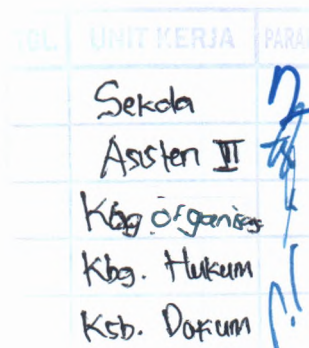 TGL. UNIT KERJA PARA
Sekda
Asisten II
Kbg organisas
Kbg. Hukum
Ksb. Dokum